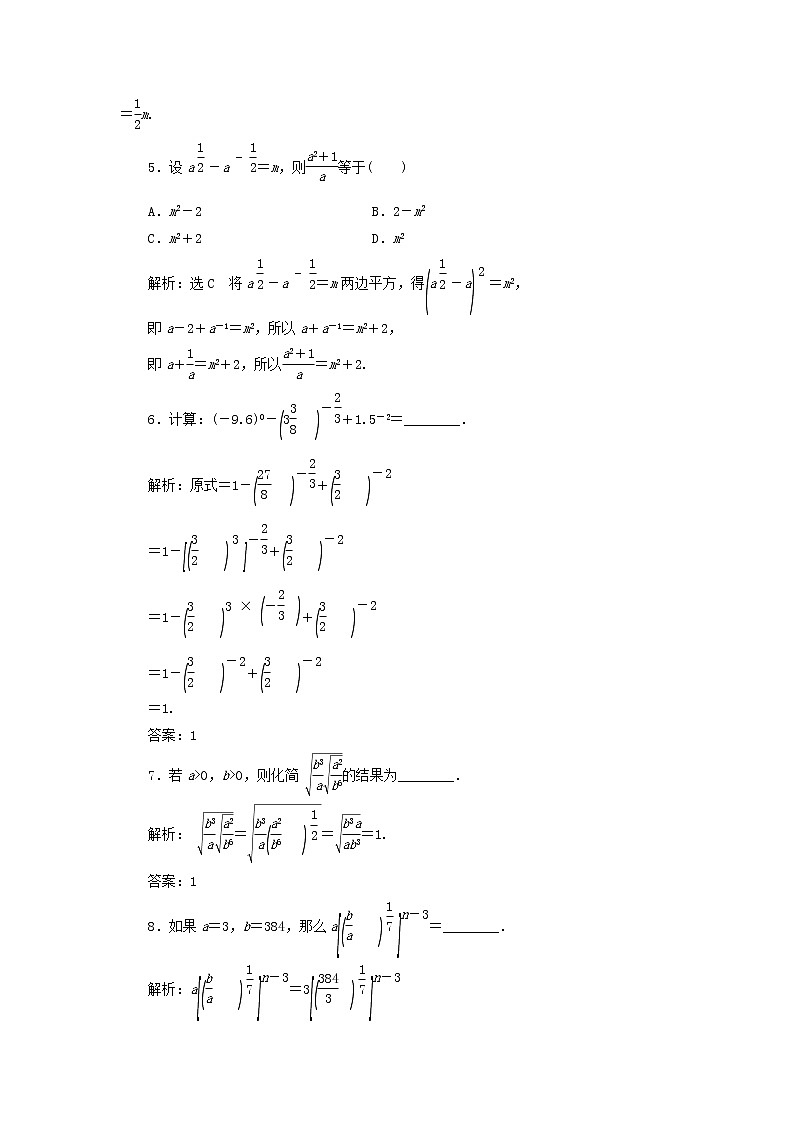 =\frac{1}{2}m.
5．设 a^{\frac{1}{2}}－a^{－\frac{1}{2}}=m，则\frac{a²＋1}{a}等于(　　)
A．m²－2　　B．2－m²
C．m²＋2　　D．m²
解析：选 C　将 a^{\frac{1}{2}}－a^{－\frac{1}{2}}=m 两边平方，得(a^{\frac{1}{2}}－a)²=m²，
即 a－2＋a⁻¹=m²，所以 a＋a⁻¹=m²＋2，
即 a＋\frac{1}{a}=m²＋2，所以\frac{a²＋1}{a}=m²＋2.
6．计算：(－9.6)⁰－(3\frac{3}{8})^{－\frac{2}{3}}＋1.5⁻²=________.
解析：原式=1－(\frac{27}{8})^{－\frac{2}{3}}＋(\frac{3}{2})^{－2}
=1－[(\frac{3}{2})^{3}]^{－\frac{2}{3}}＋(\frac{3}{2})^{－2}
=1－(\frac{3}{2})^{3×(－\frac{2}{3})}＋(\frac{3}{2})^{－2}
=1－(\frac{3}{2})^{－2}＋(\frac{3}{2})^{－2}
=1.
答案：1
7．若 a>0，b>0，则化简 \sqrt{\frac{b³}{a}\sqrt{\frac{a²}{b⁶}}}的结果为________.
解析： \sqrt{\frac{b³}{a}\sqrt{\frac{a²}{b⁶}}}=\sqrt{\frac{b³}{a}(\frac{a²}{b⁶})^{\frac{1}{2}}}=\sqrt{\frac{b³a}{ab³}}=1.
答案：1
8．如果 a=3，b=384，那么 a[(\frac{b}{a})^{\frac{1}{7}}]^{n－3}=________.
解析：a[(\frac{b}{a})^{\frac{1}{7}}]^{n－3}=3[(\frac{384}{3})^{\frac{1}{7}}]^{n－3}